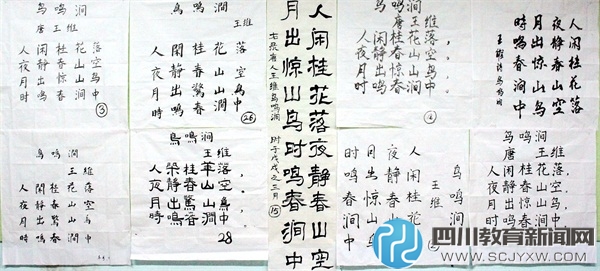 鸟鸣涧
唐 王维
人闲桂花落
夜静春山空
月出惊山鸟
时鸣春涧中
③
鸟鸣澗
王维
人閒桂花落
夜静春山空
月出驚山鸟
时鸣春澗中
26
人闲桂花落夜静春山空
月出惊山鸟时鸣春涧中
唐人王维鸟鸣涧 时于戊戌之三月
15
鸟鸣涧
唐 王维
人闲桂花落,
夜静春山空。
月出惊山鸟,
时鸣春涧中。
④
人闲桂花落
夜静春山空
月出惊山鸟
时鸣春涧中
王维诗鸟鸣涧
鸟鸣澗
王维
人閒桂花落
夜静春山空
月出驚山鸟
时鸣春澗中
鳥鳴澗
王维
人桂华落
夜静春山空
月出驚山鳥
时鳴春澗中
28
鸟鸣涧
王维
人闲桂花落
夜静春山空
月出惊山鸟
时鸣春涧中
鸟鸣涧
唐 王维
人闲桂花落,
夜静春山空。
月出惊山鸟,
时鸣春涧中。
四川教育新闻网
WWW.SCJYXW.CN